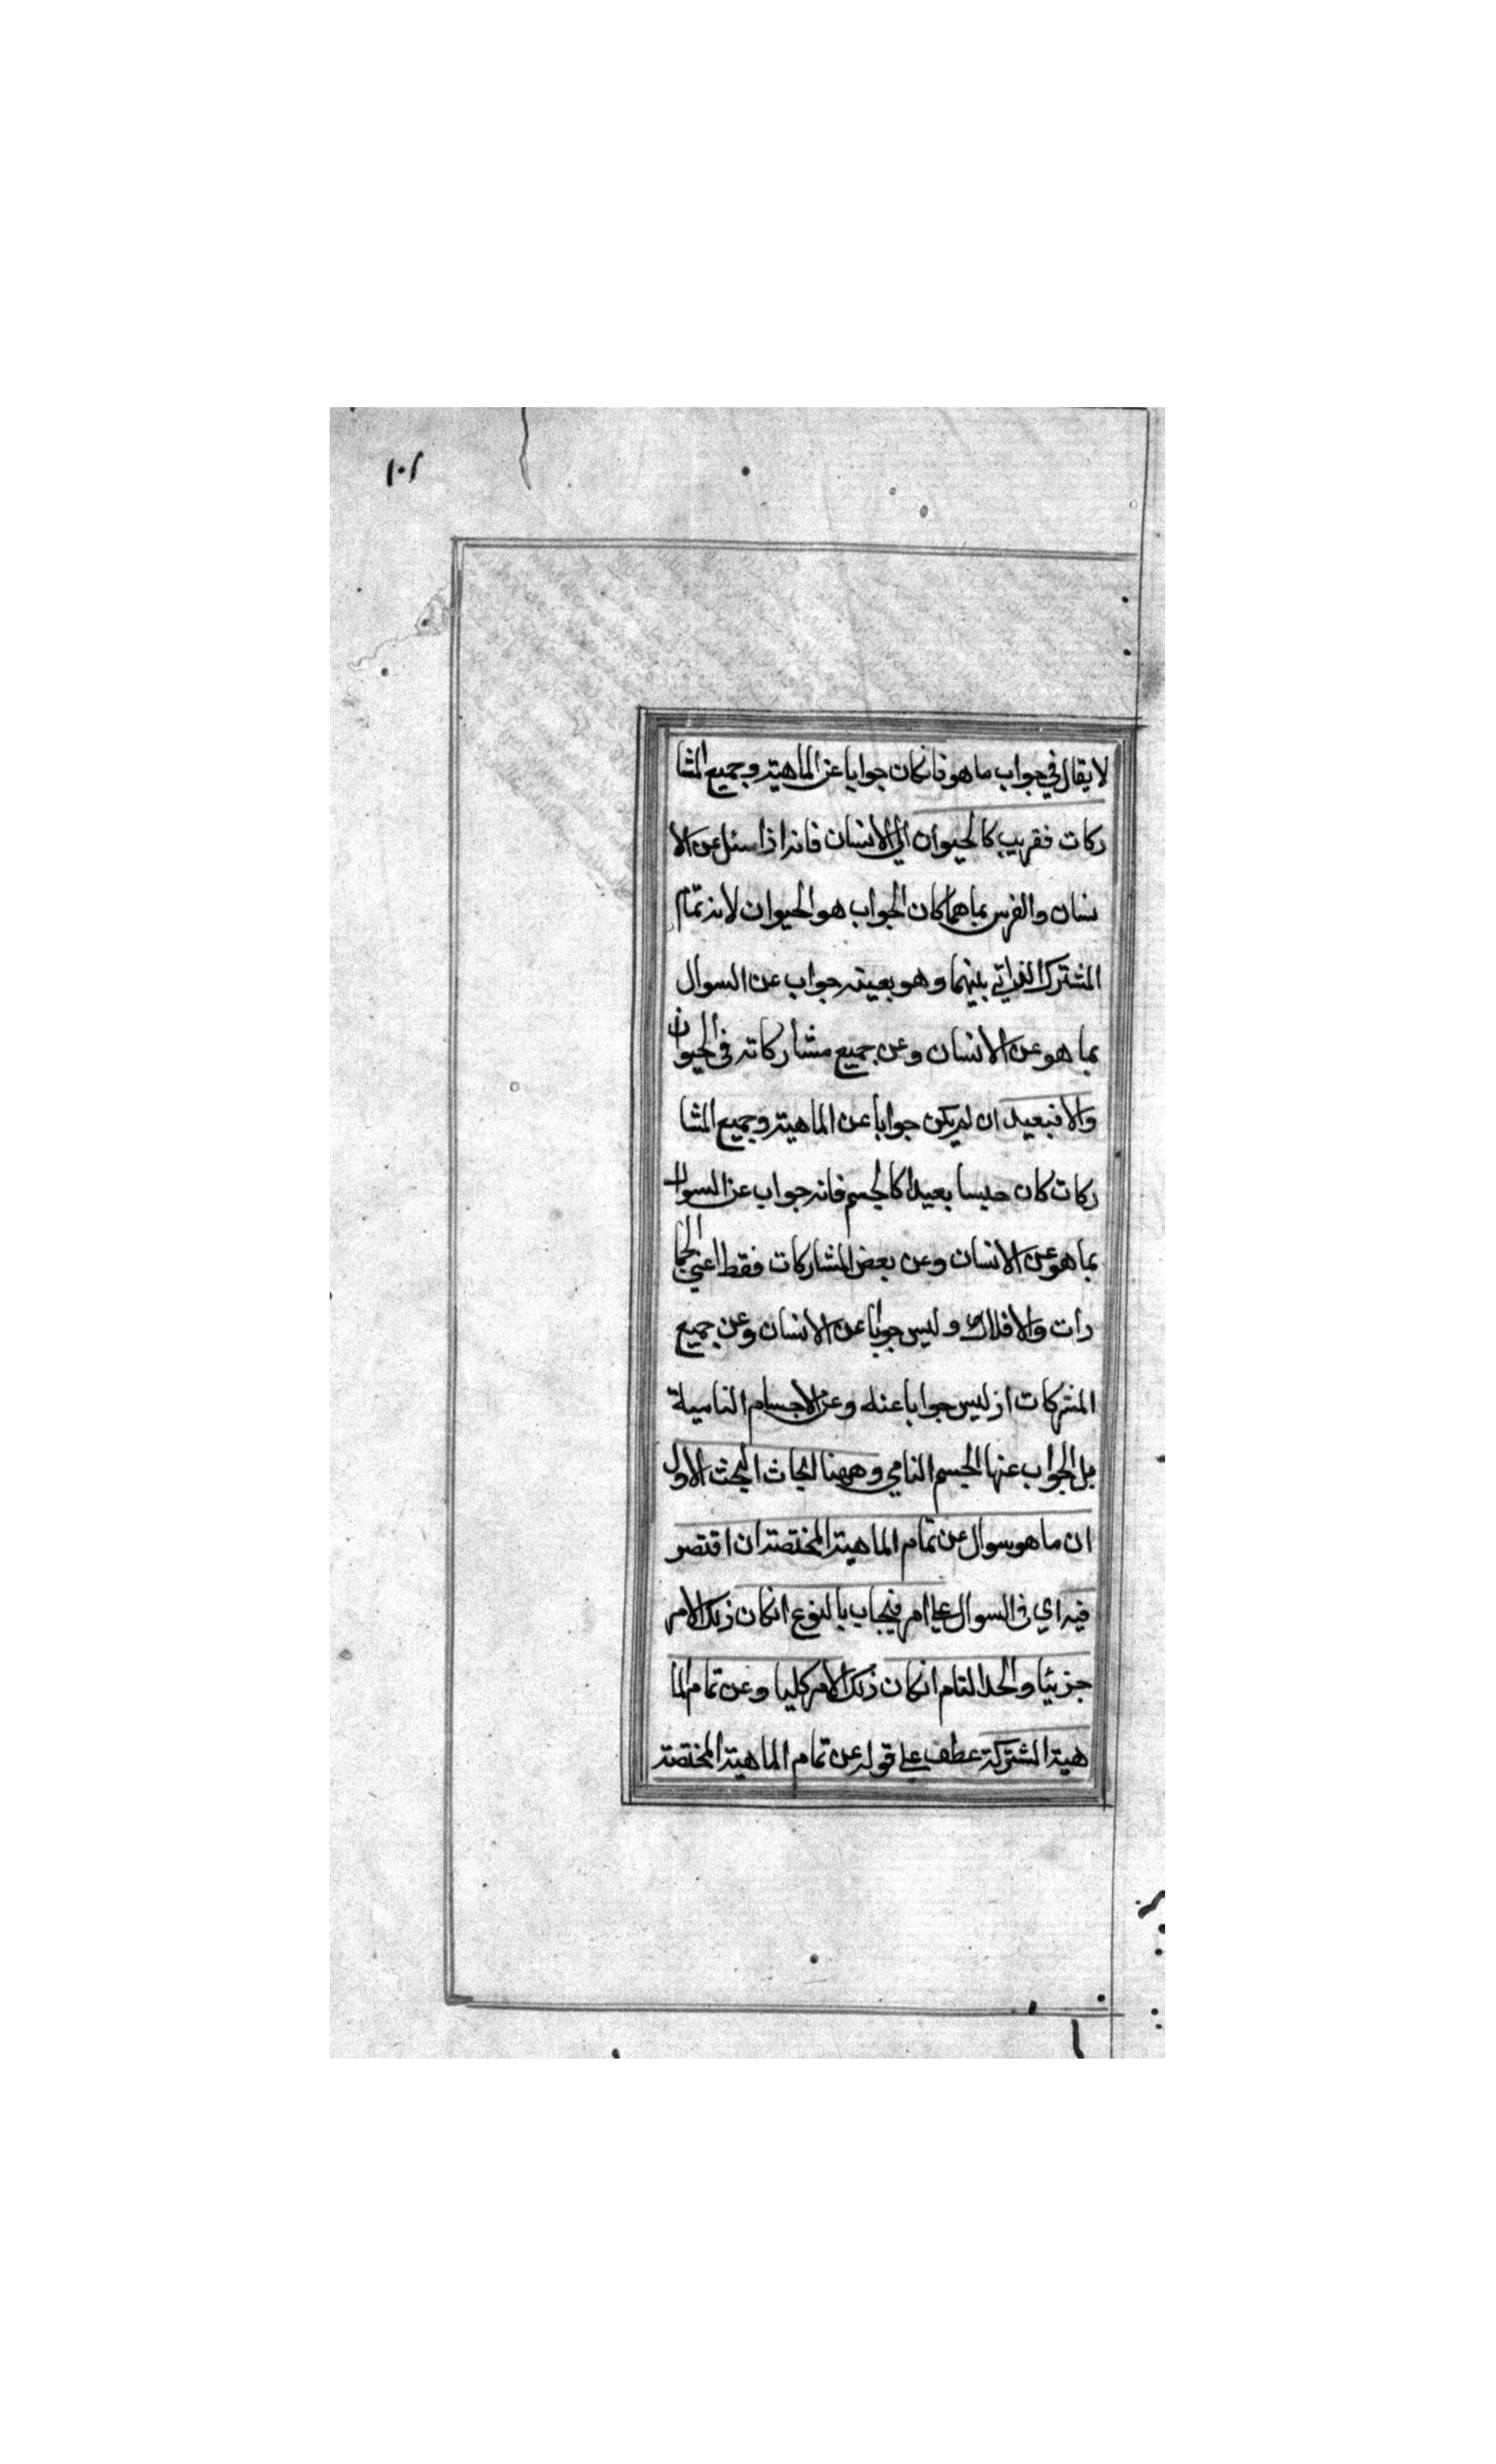 ١٠١
لا يقال في جواب ما هو فانكان جوابا عن الماهية وجميع المشا
ركات فقريب كالحيوان الى الانسان فانه اذا سئل عن الا
نسان والفرس بما هما كان الجواب هو الحيوان لانه تمام
المشترك الذاتي بينهما وهو بعينه جواب عن السوال
بما هو عن الانسان وعن جميع مشاركاته في الحيوان
والا فبعيد ان لم يكن جوابا عن الماهية وجميع المشا
ركات كان جنسا بعيدا كالجسم فانه جواب عن السوال
بما هو عن الانسان وعن بعض المشاركات فقط اعني الجما
دات والافلاك وليس جوابا عن الانسان وعن جميع
المشركات اذ ليس جوابا عنه وعن الاجسام النامية
بل الجواب عنها الجسم النامي وههنا ابحاث البحث الاول
ان ما هو سوال عن تمام الماهية المختصة ان اقتصر
فيه اي في السوال على امر فيجاب بالنوع انكان ذلك الامر
جزئيا والحد التام انكان ذلك الامر كليا وعن تمام الما
هية المشتركة عطف على قوله عن تمام الماهية المختصة